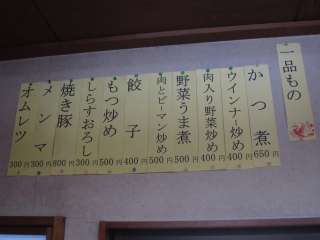 一品もの
かつ煮 650円
ウインナー炒め 400円
肉入り野菜炒め 400円
野菜うま煮 500円
肉とピーマン炒め 500円
餃子 400円
もつ炒め 500円
しらすおろし 300円
焼き豚 600円
メンマ 300円
オムレツ 300円